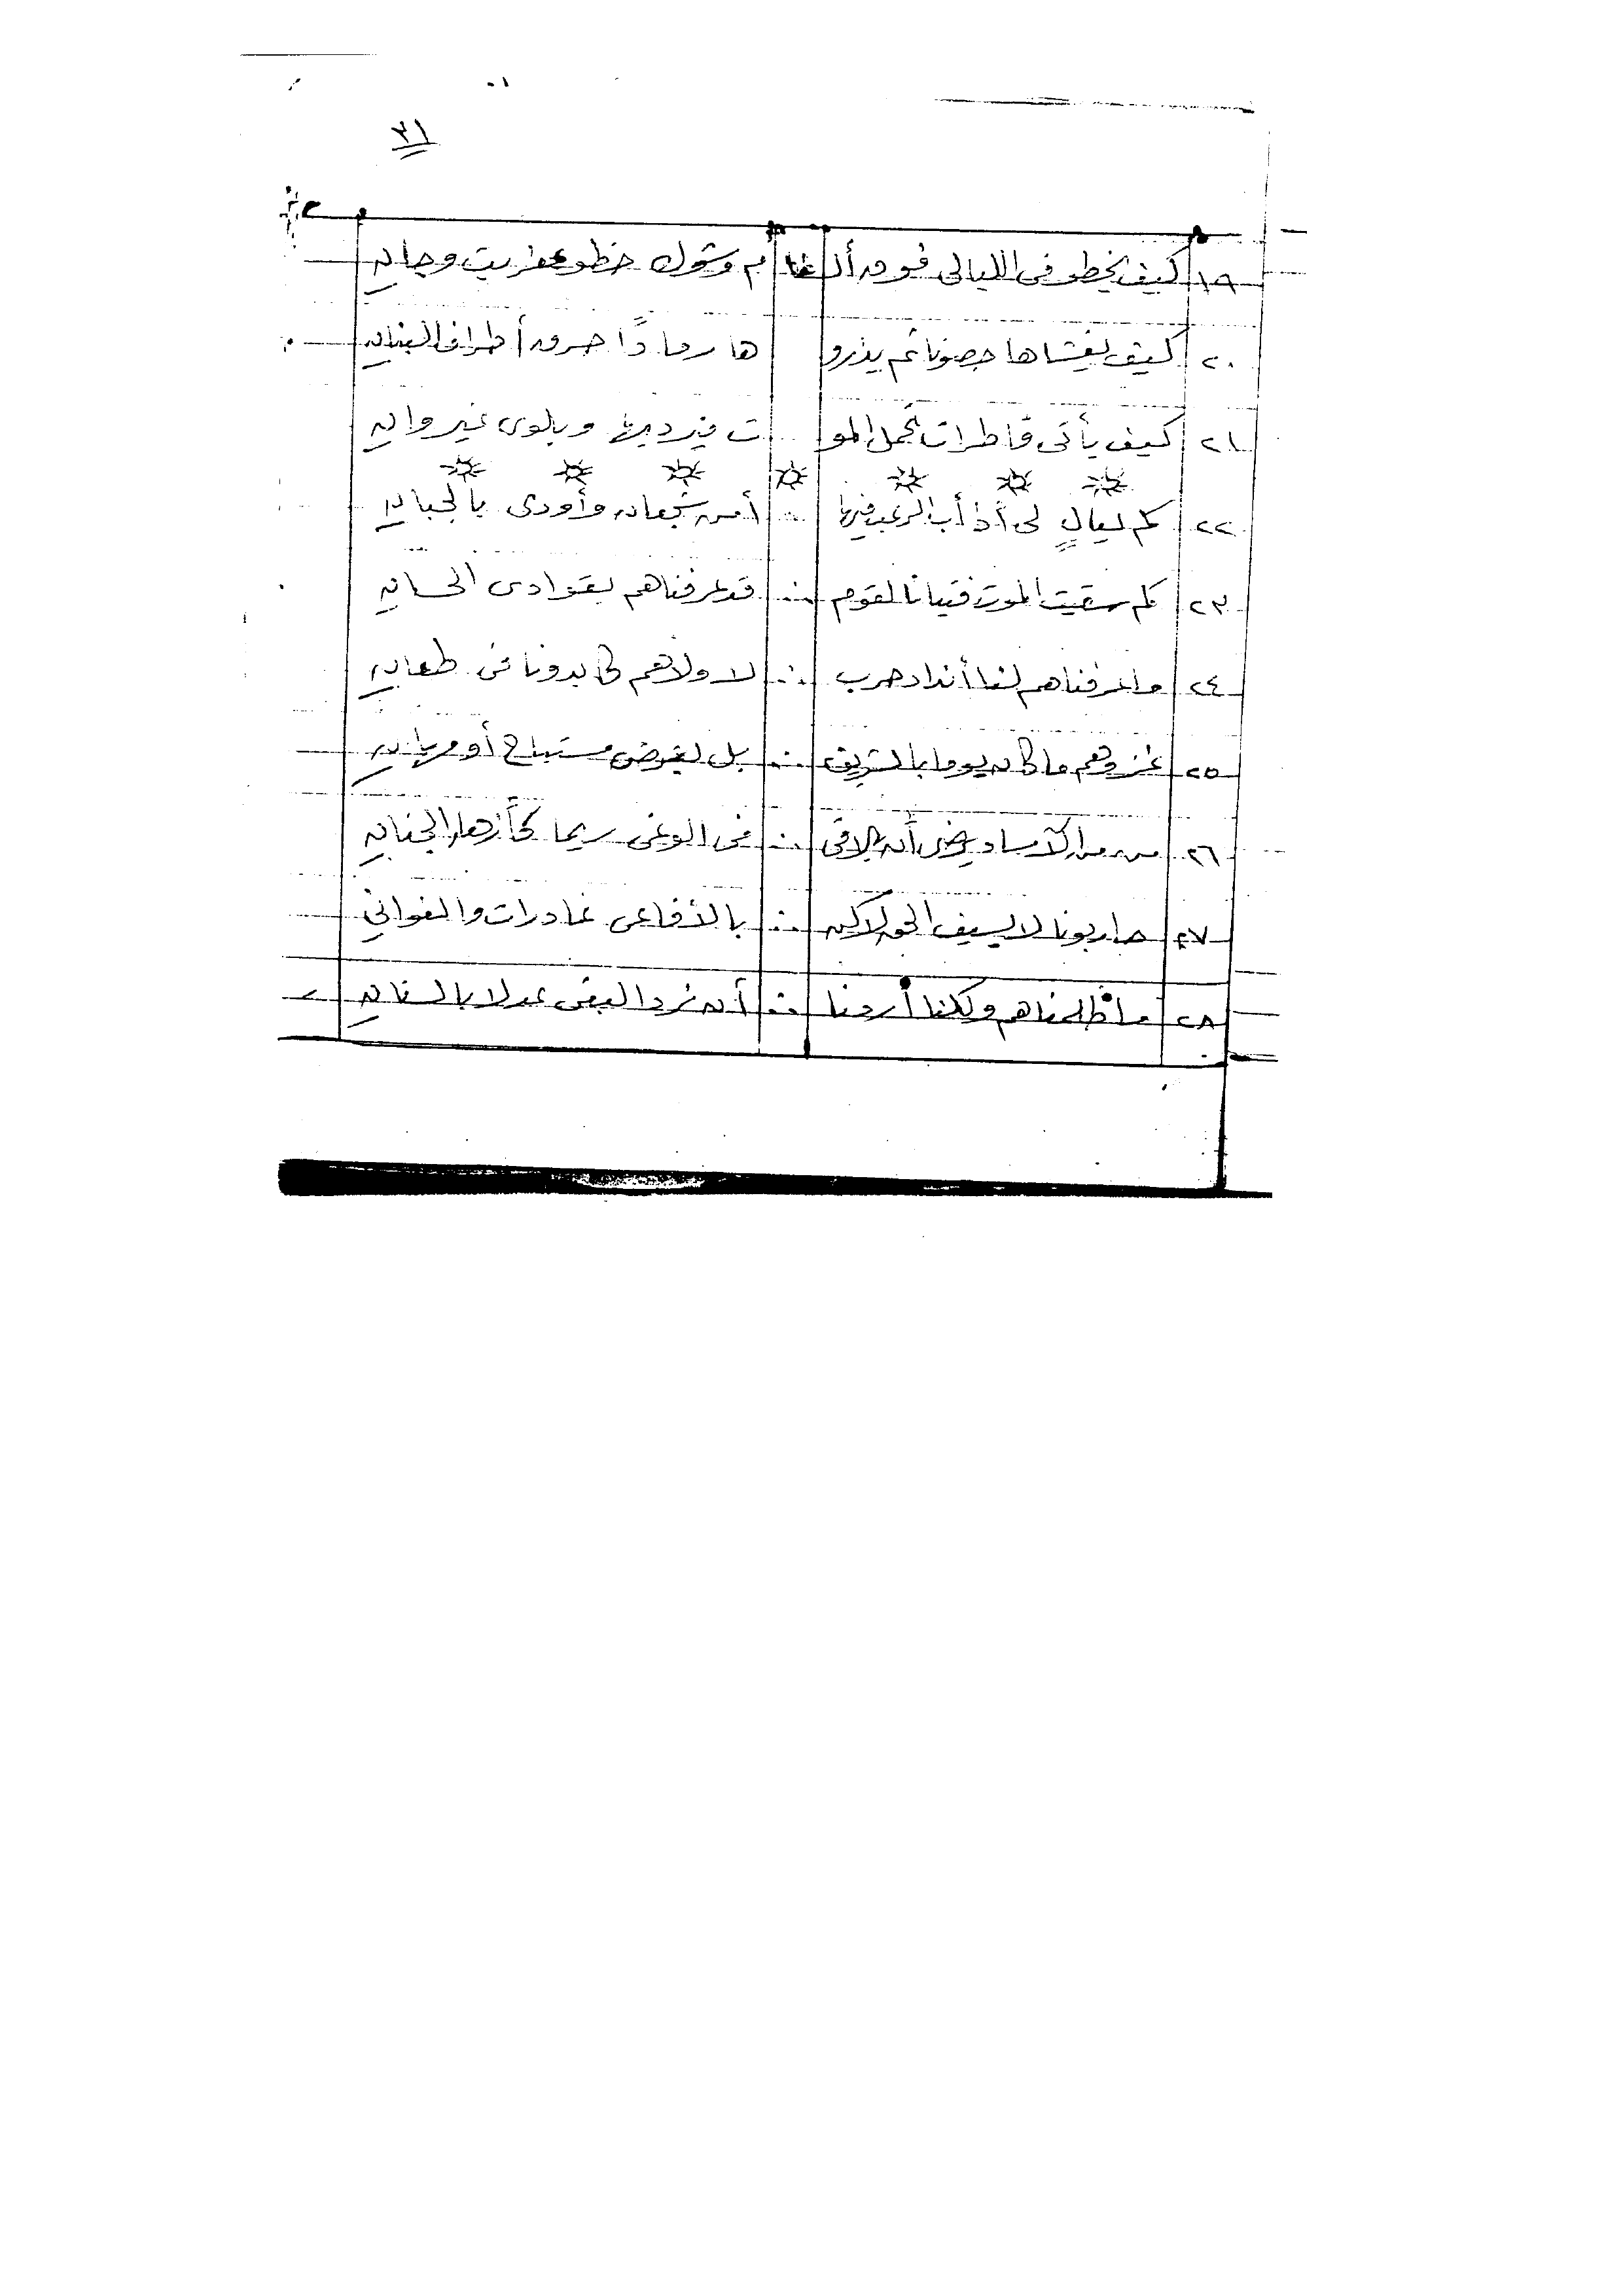 ٣١
١٩ كيف يخطو فى الليالى فوق ألغا م وشوك خطو عفريت وجان
٢٠ كيف يغشاها حصونا ثم يذرو ها رمادًا حرق أطراف البنان
٢١ كيف يأتى قاطرات تحمل المو ت فيرديها وبلوى غير وان
٢٢ كم ليالٍ لى أذأب الرعب فيها ∴ أمن شجعان وأودى بالجبان
٢٣ كم سقيت الموت فتيانا لقوم ∴ قد عرفناهم بقوادى الحسان
٢٤ ما عرفناهم لنا أنداد حرب ∴ لا ولاهم كابدونا فى طعان
٢٥ غزوهم ما كان يوما بالشريف ∴ بل بغرض مستباح أو
٢٦ من من الآساد يرضى أن يلاقى ∴ فى الوغى ريما كأزهار الجنان
٢٧ حاربونا لا بسيف الحق لاكن ∴ بالأفاعى غادرات والغوانى
٢٨ ما ظلمناهم ولكنا أردنا ∴ أن نرد البغى عدلا بالسنان